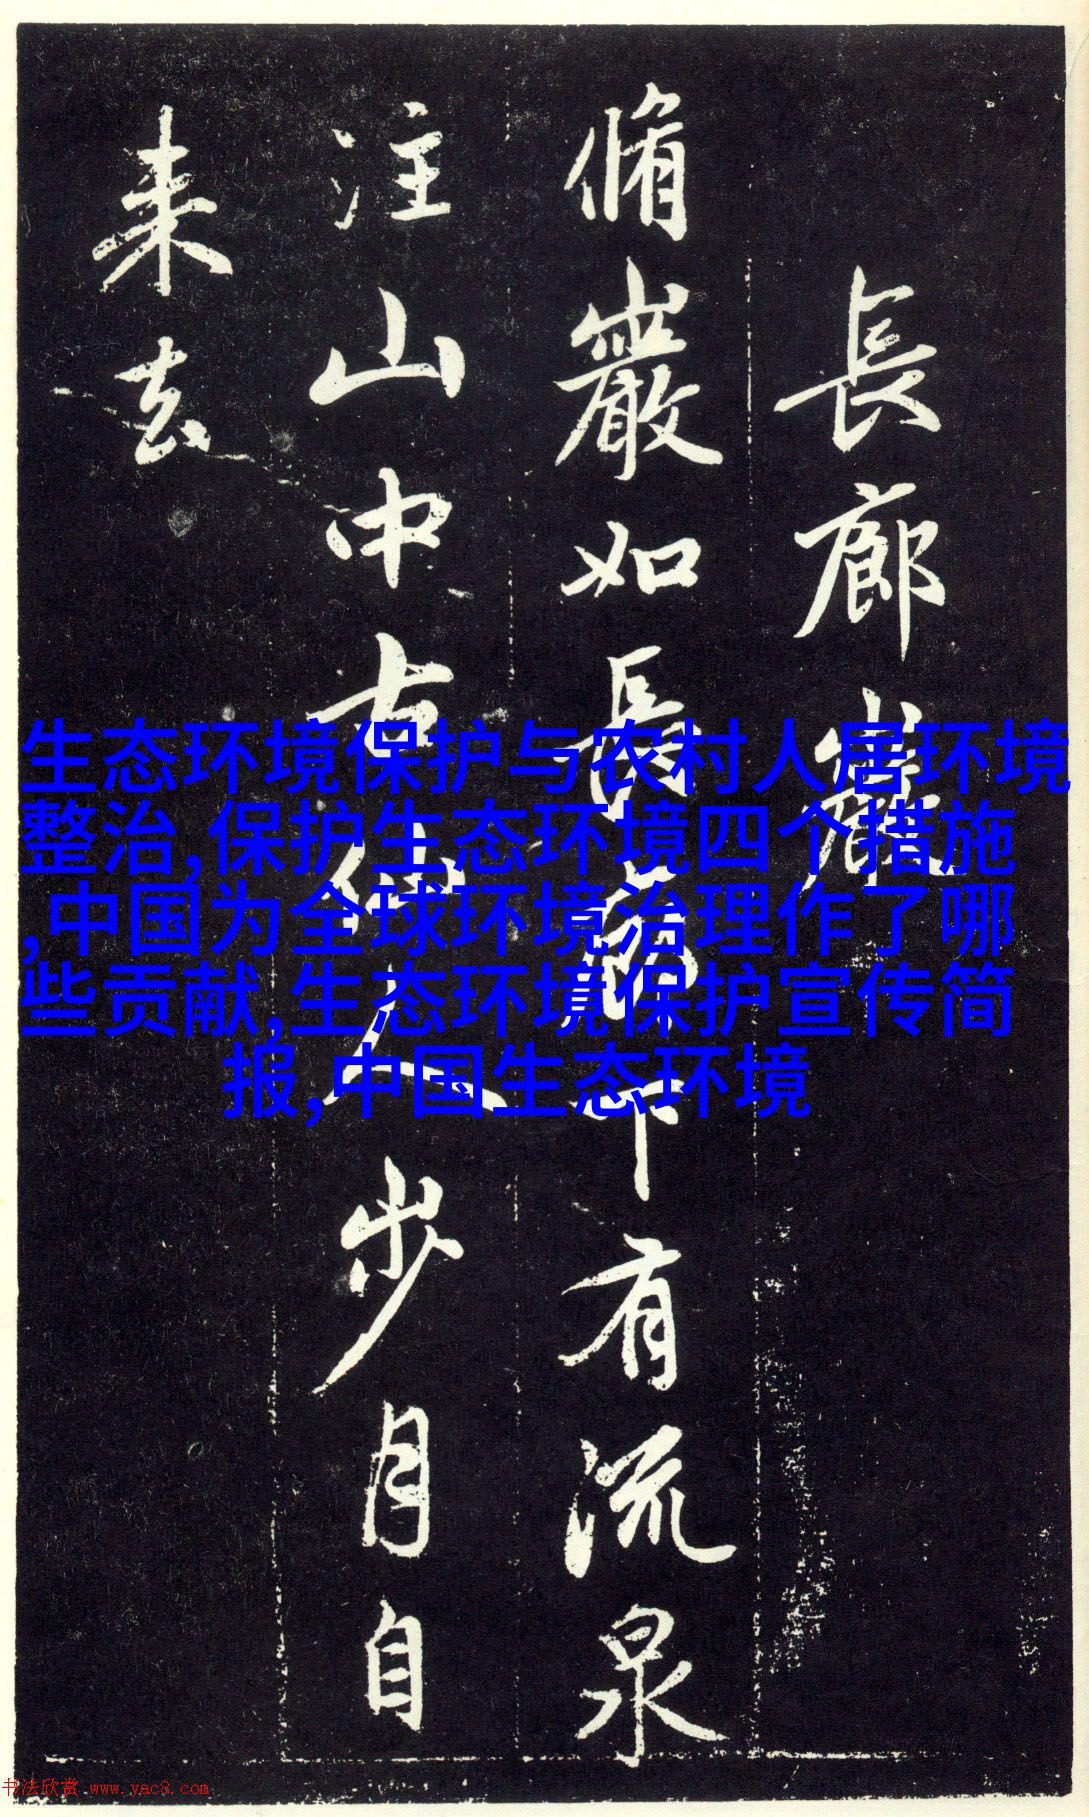 長廊巖
脩巖如長廊下有流泉
注山中古仙人步月自
来去
生态环境保护与农村人居环境
整治,保护生态环境四个措施
,中国为全球环境治理作了哪
些贡献,生态环境保护宣传简
报,中国生态环境
书法欣赏 www.yac8.com